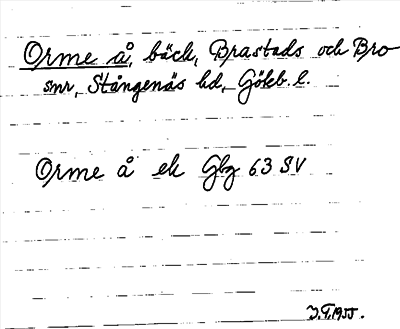 Orme å, bäck, Brastads och Bro
snr, Stångenäs hd, Göteb. l.
Orme å ek Gbg 63 SV
1955.